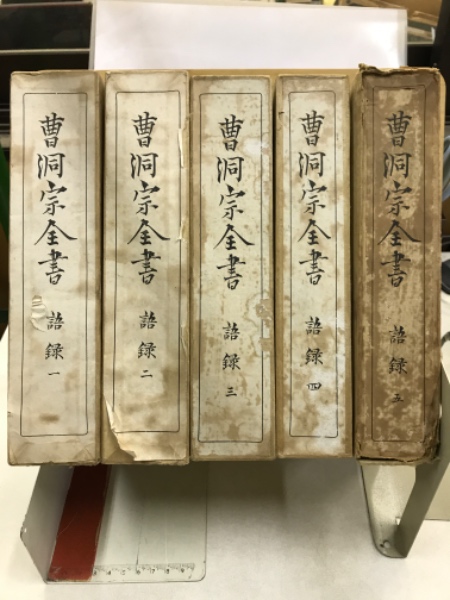 曹洞宗全書 語録 一
曹洞宗全書 語録 二
曹洞宗全書 語録 三
曹洞宗全書 語録 四
曹洞宗全書 語録 五